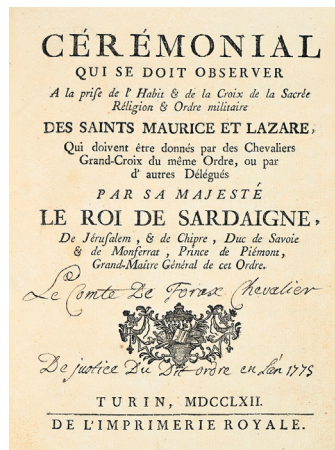 CÉRÉMONIAL
QUI SE DOIT OBSERVER
A la prise de l' Habit & de la Croix de la Sacrée
Réligion & Ordre militaire
DES SAINTS MAURICE ET LAZARE,
Qui doivent être donnés par des Chevaliers
Grand-Croix du même Ordre, ou par
d' autres Délégués
PAR SA MAJESTÉ
LE ROI DE SARDAIGNE,
De Jérusalem, & de Chipre, Duc de Savoie
& de Monferrat, Prince de Piémont,
Grand-Maître Général de cet Ordre.
Le Comte De Forax Chevalier
De justice Du Dit ordre en L'an 1775
TURIN, MDCCLXII.
DE L'IMPRIMERIE ROYALE.